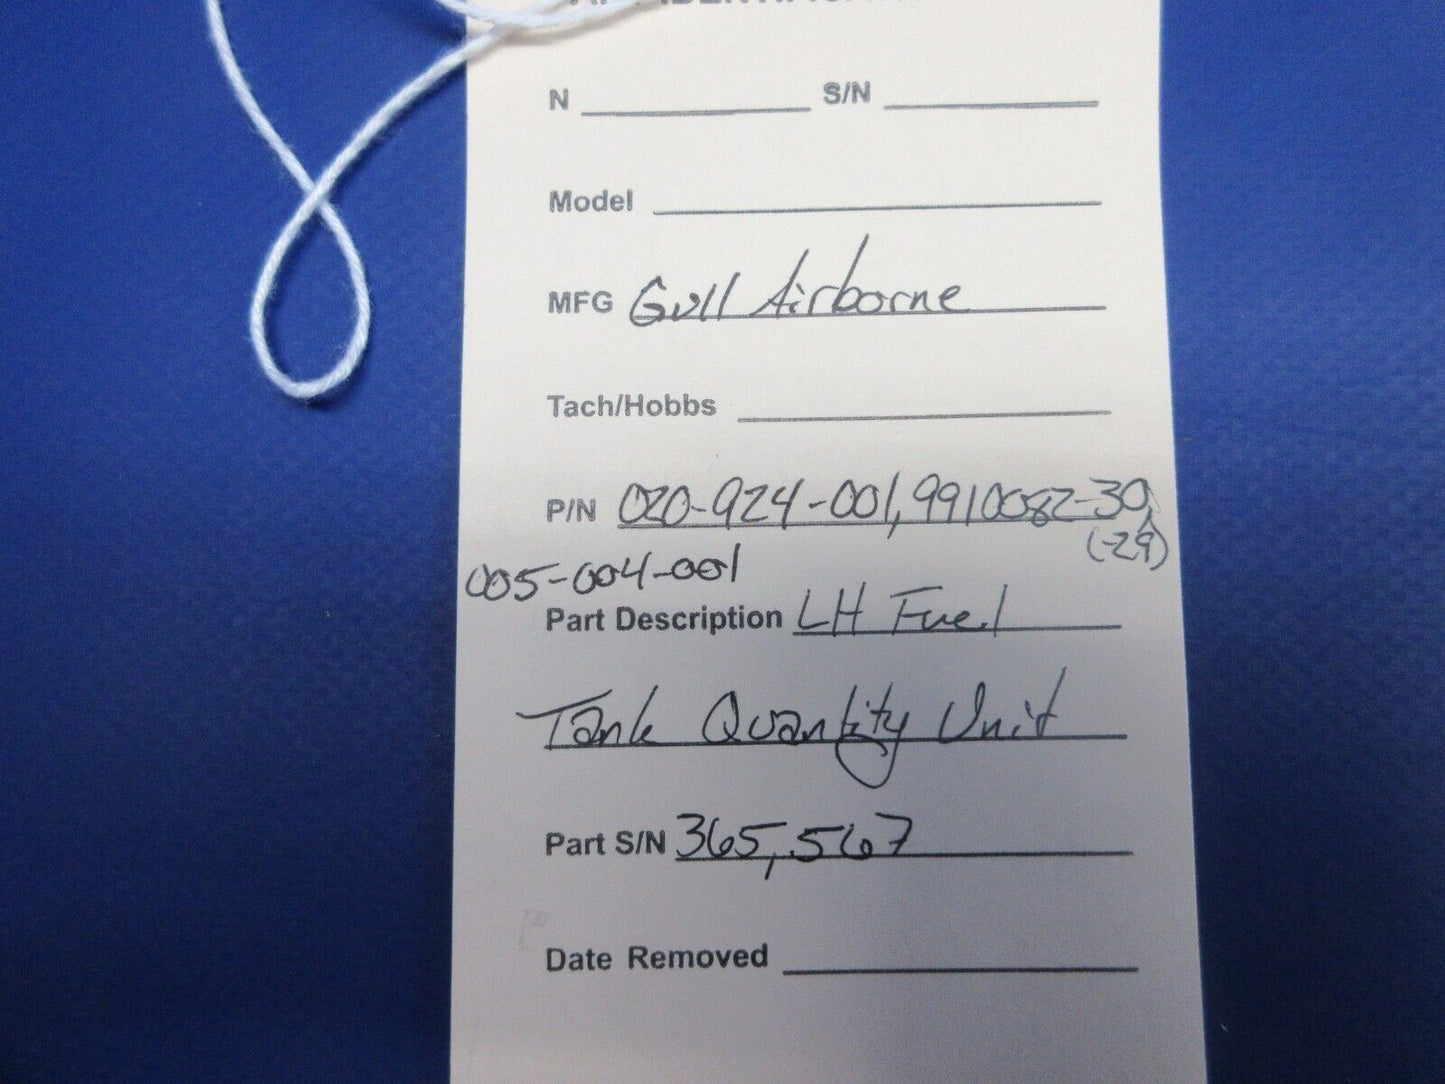 N S/N
Model
MFG Gull Airborne
Tach/Hobbs
P/N 020-924-001, 9910082-30,
(-29)
005-004-001
Part Description LH Fuel
Tank Quantity Unit
Part S/N 365, 567
Date Removed